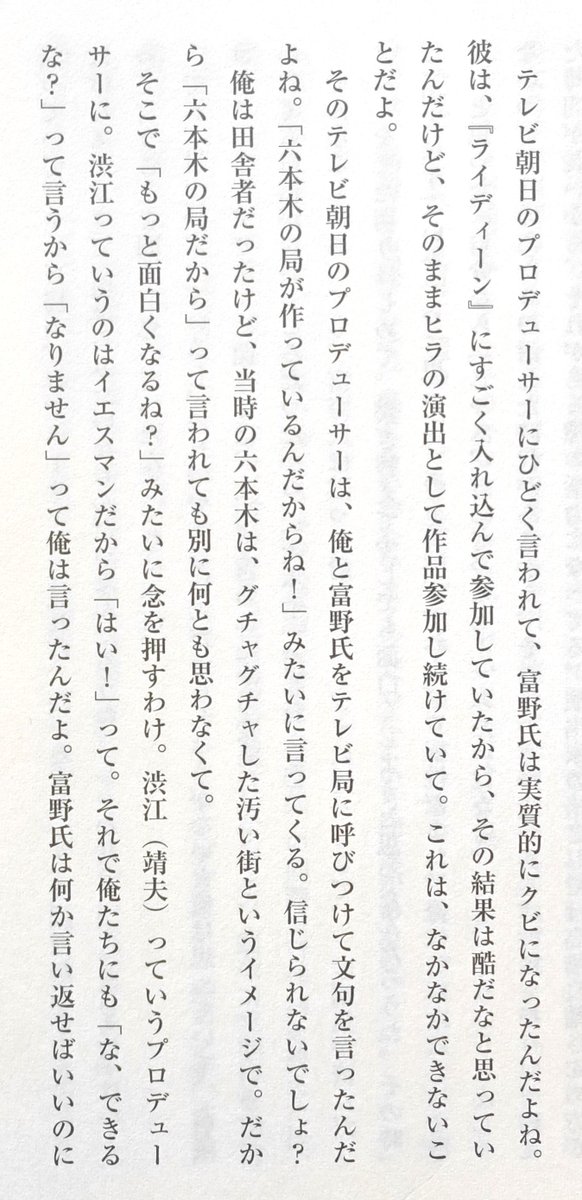 テレビ朝日のプロデューサーにひどく言われて、富野氏は実質的にクビになったんだよね。
彼は、『ライディーン』にすごく入れ込んで参加していたから、その結果は酷だなと思ってい
たんだけど、そのままヒラの演出として作品参加し続けていて。これは、なかなかできないこ
とだよ。
そのテレビ朝日のプロデューサーは、俺と富野氏をテレビ局に呼びつけて文句を言ったんだ
よね。「六本木の局が作っているんだからね！」みたいに言ってくる。信じられないでしょ？
俺は田舎者だったけど、当時の六本木は、グチャグチャした汚い街というイメージで。だか
ら「六本木の局だから」って言われても別に何とも思わなくて。
そこで「もっと面白くなるね？」みたいに念を押すわけ。渋江（靖夫）っていうプロデュー
サーに。渋江っていうのはイエスマンだから「はい！」って。それで俺たちにも「な、できる
な？」って言うから「なりません」って俺は言ったんだよ。富野氏は何か言い返せばいいのに